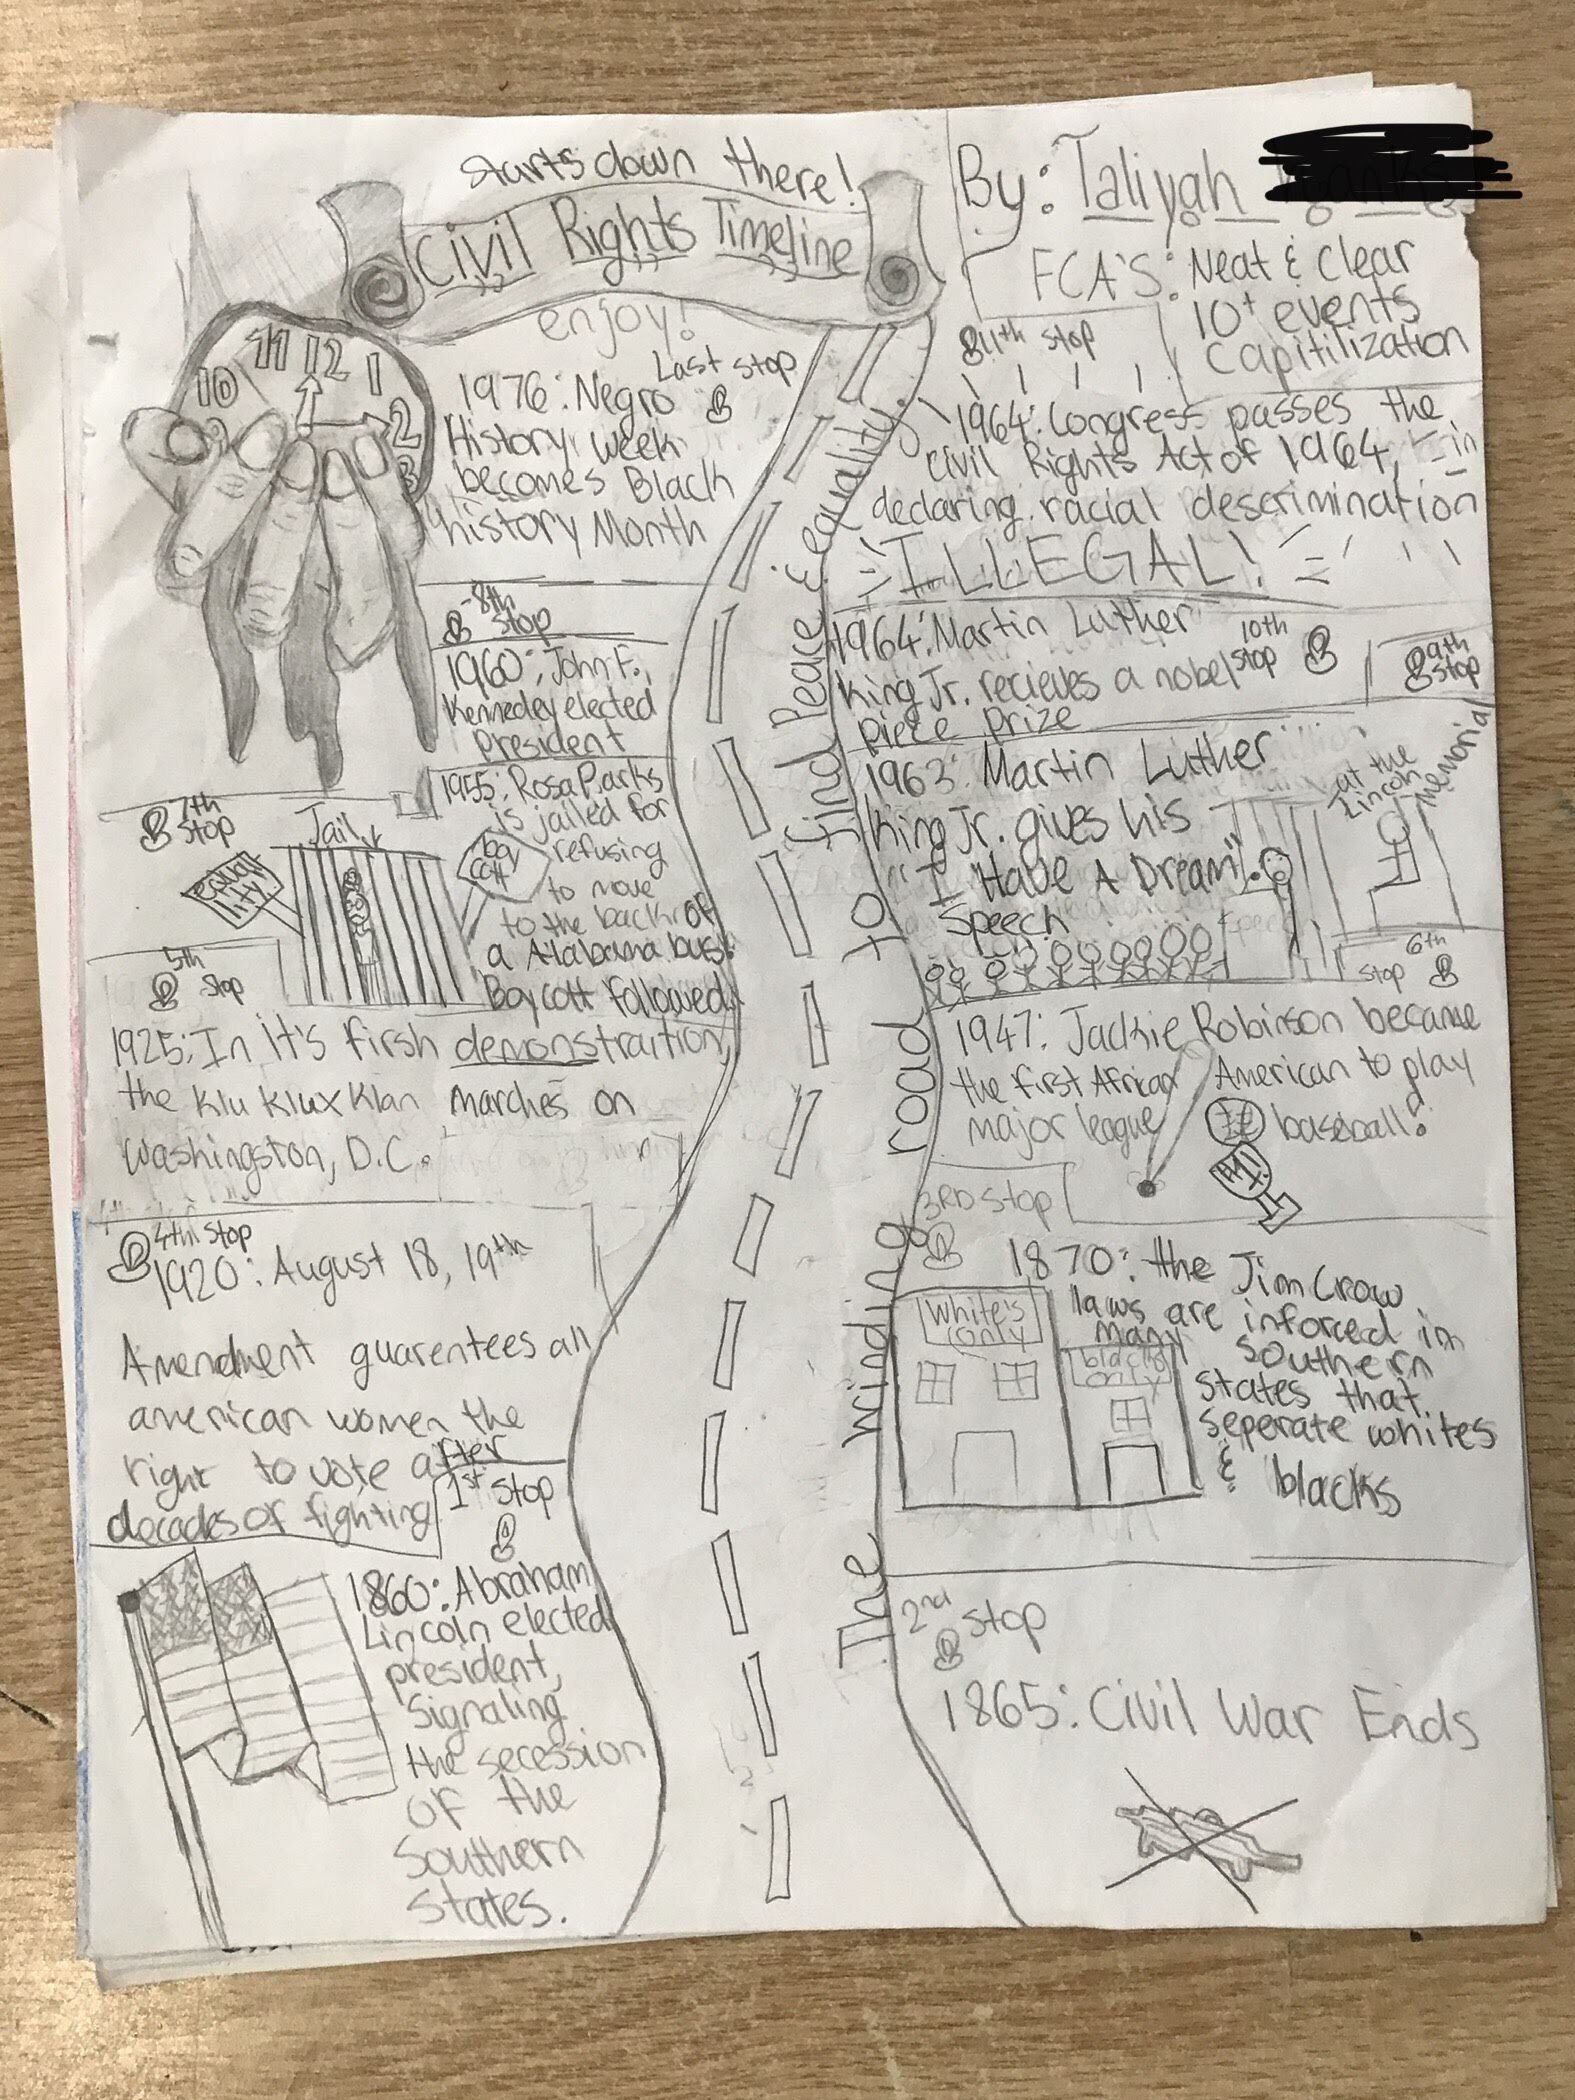 Starts down there!
Civil Rights Timeline
enjoy!
By: Taliyah
FCA'S: Neat & Clear
10+ events
Capitilization
11 12 1
10 2
9 3
Last stop
1976: Negro
History week
becomes Black
history Month
11th stop
1964: Congress passes the
Civil Rights Act of 1964, in
declaring racial descrimination
ILLEGAL!
8th
stop
1960: John F.
Kennedey elected
President
10th
stop
1964: Martin Luther
King Jr. recieves a nobel
piece prize
9th
stop
1963: Martin Luther
King Jr. gives his
"I Have A Dream"
Speech
at the
Lincoln
Memorial
7th
stop
Jail
equal
ity
boy
cott
1955: Rosa Parks
is jailed for
refusing
to move
to the back of
a Alabama bus.
Boycott followed
6th
stop
1947: Jackie Robinson became
the first African American to play
major league baseball!
#1!
5th
stop
1925: In it's firsh demonstraition,
the Klu Klux Klan marches on
Washingston, D.C.
4th stop
1920: August 18, 19th
Amendment guarentees all
american women the
right to vote after
decades of fighting
3RD stop
1870: the Jim Crow
laws are inforced in
many southern
states that
seperate whites
& blacks
White's
only
blacks
only
1st stop
1860: Abraham
Lincoln elected
president,
Signaling
the secession
of the
Southern
states.
2nd
stop
1865: Civil War Ends
The winding road to find Peace & equality.